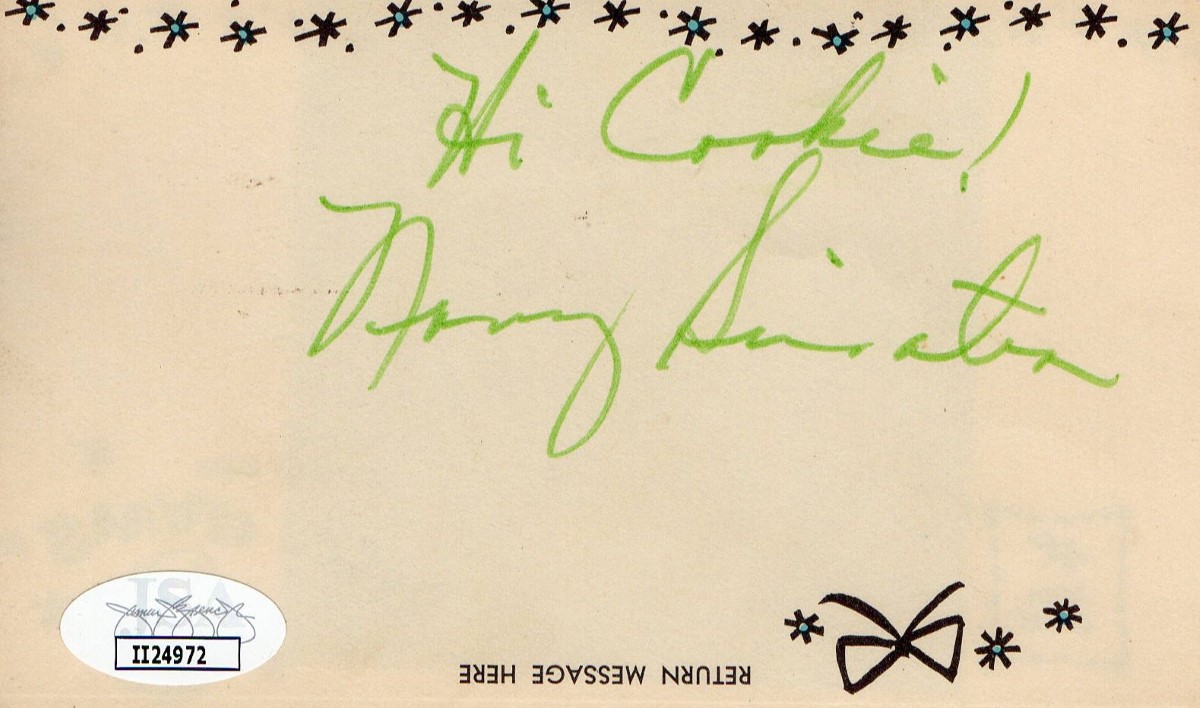 Hi Cookie!
Nancy Sinatra
James Spence
II24972
RETURN MESSAGE HERE